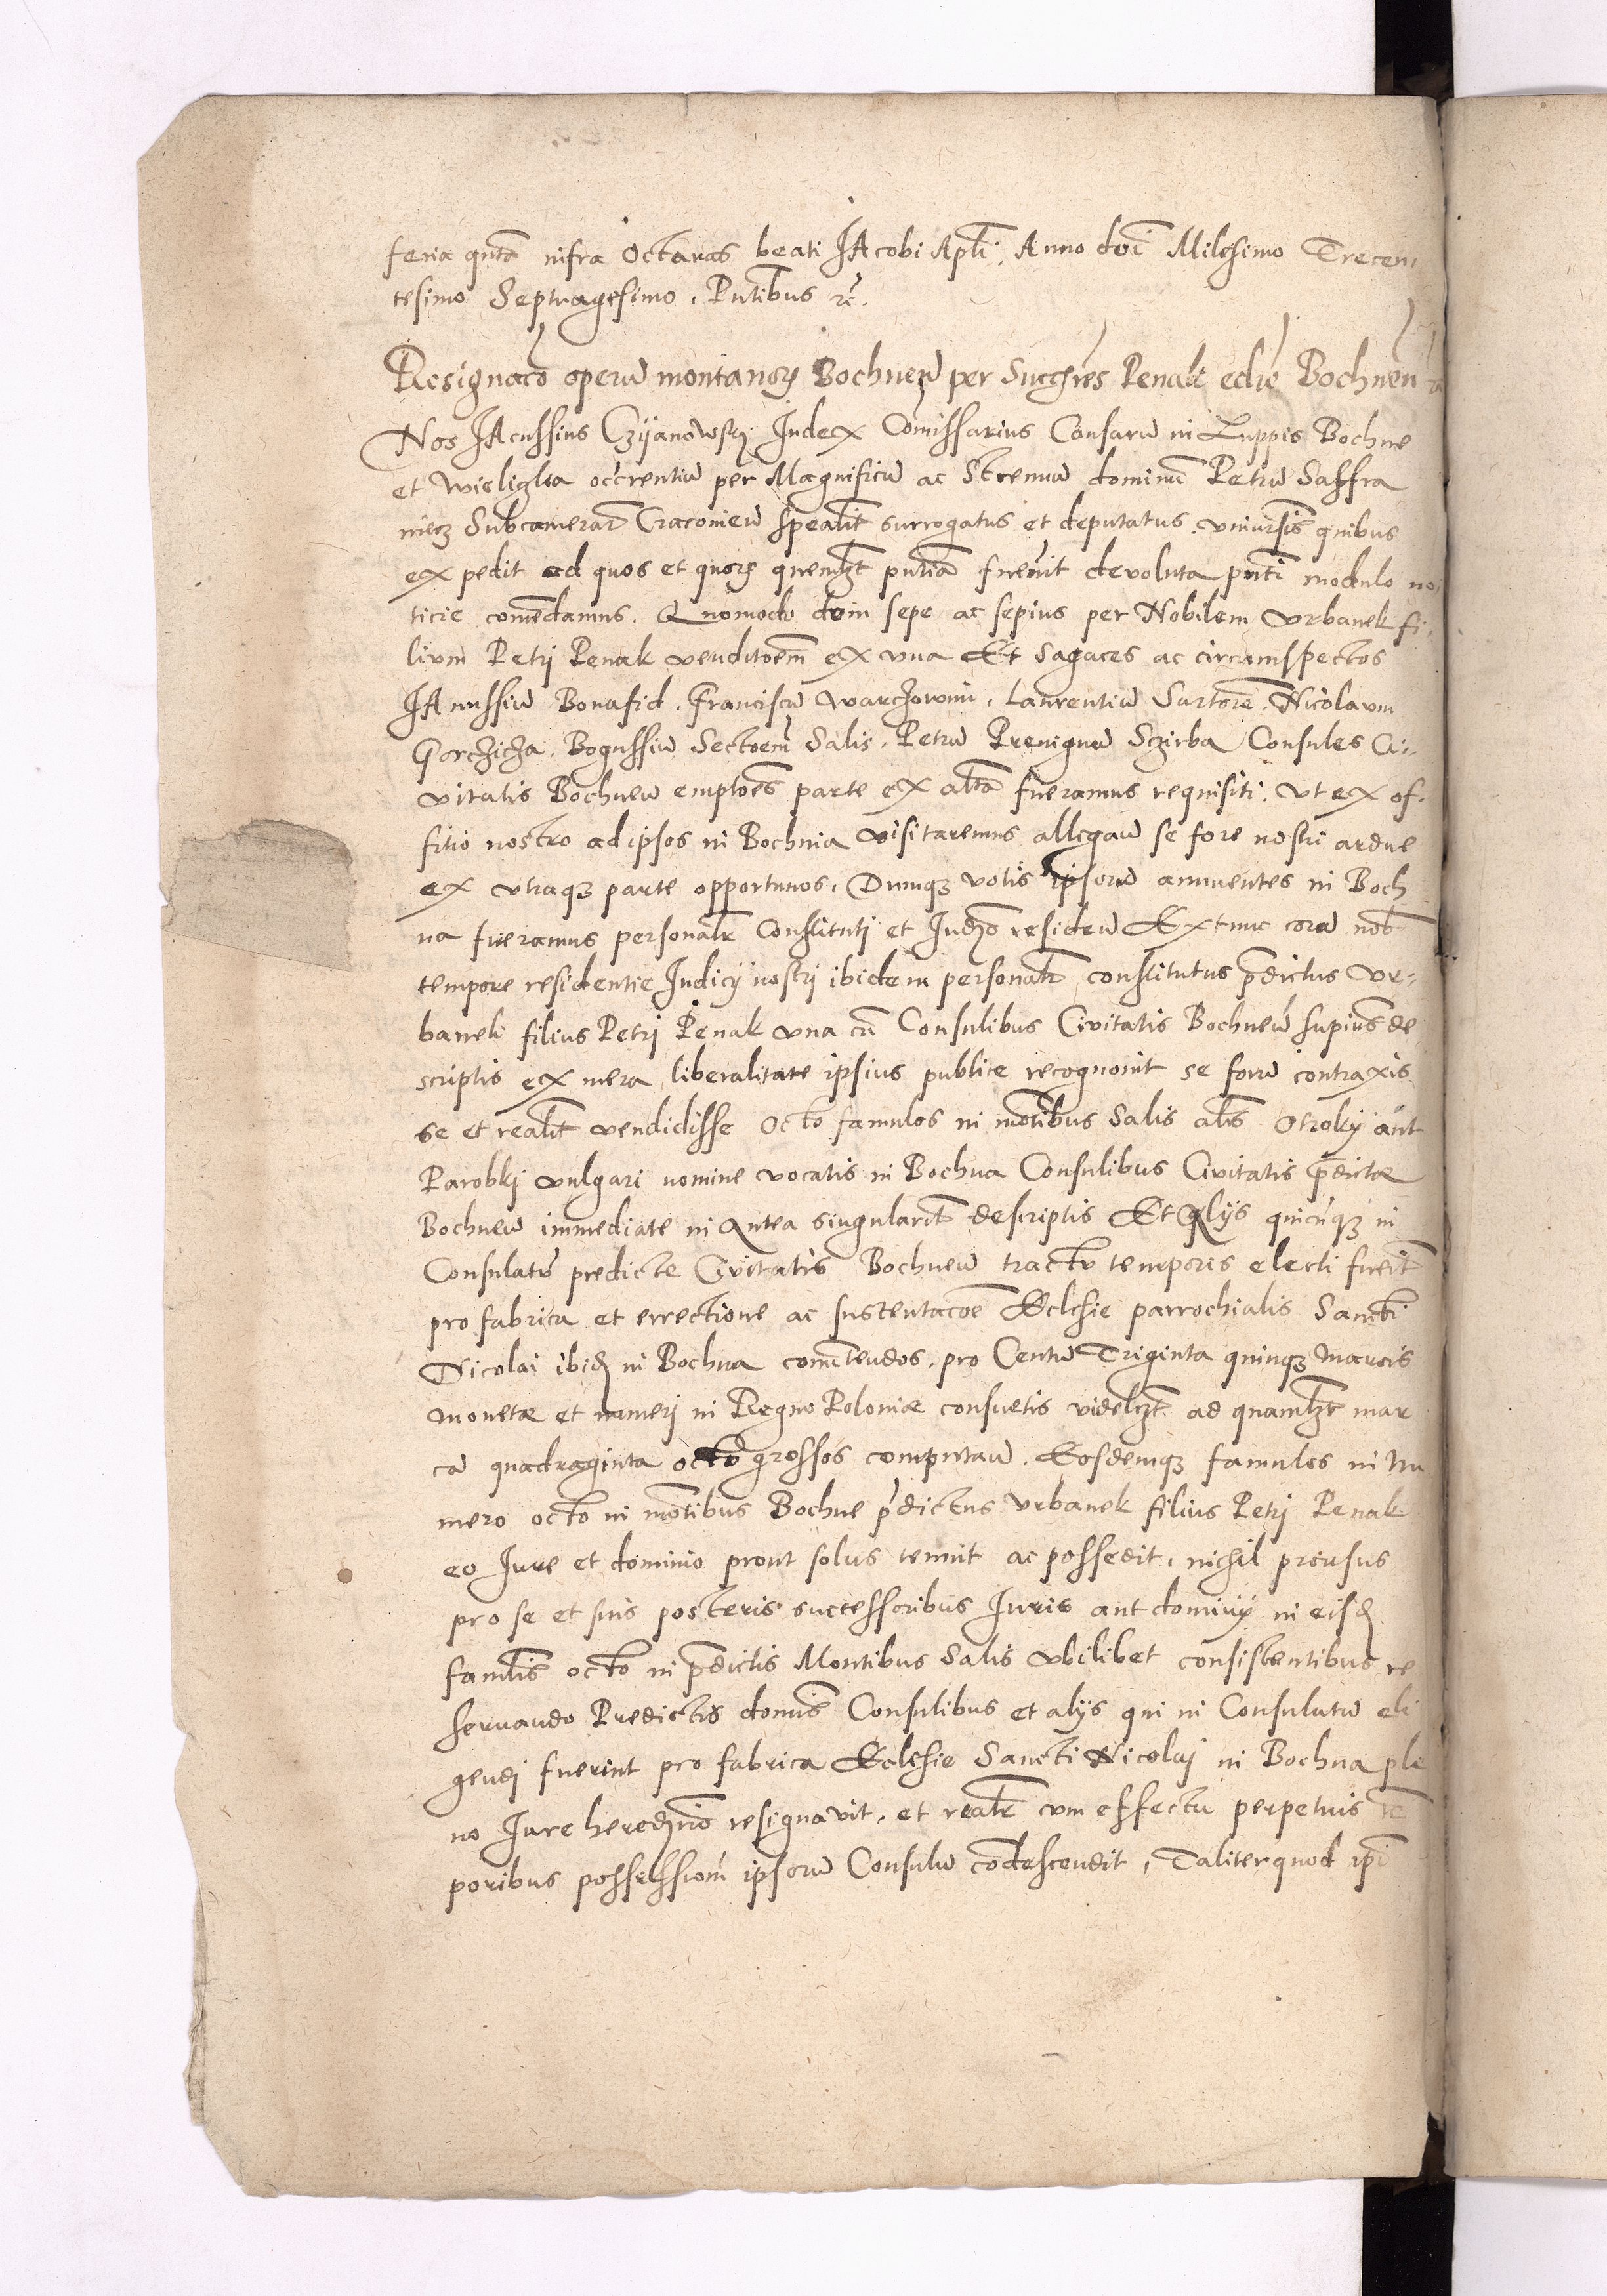 feria qnta infra Octavas beati JAcobi Apli, Anno doi Milesimo Trecen
tesimo Septuagesimo, Pntibus rc.
Resignaco operu montanorz Bochnen per Succssres Penak eclie Bochnen
Nos JAnussius Czijanowskj Judex Comissarius Causaru in Zuppis Bochne
et Wieliczka occrentiu per Magnificu ac Strenuu dominu Petru Saffra
niecz Subcamerar Cracovien spealit surrogatus et deputatus, vniursis quibus
expedit ad quos et quorz quemlzt pntia fuerint devoluta pnti modulo no
ticie comendamus. Quomodo dum sepe ac sepius per Nobilem Vrbanek fi-
lium Petrj Penak venditoem ex vna Et Sagaces ac circumspectos
JAnussiu Bonafid, Franciscu Warchowni, Laurentiu Sartore, Nicolaum
Gorczicza, Bogussiu Sectoem Salis, Petru Prenignu Szirba Consules Ci-
vitatis Bochnen emptoes parte ex alta fueramus requisiti, Vt ex of-
fitio nostro ad ipsos in Bochnia visitaremus allegan se fore nostri ardue
ex vtraqz parte opportunos, Dumqz votis ipsoru annuentes in Boch
na fueramus personalr Constituti et Judzo residen Extunc cora nob
tempore residentie Judicij nostrj ibidem personalr constitutus pdictus Vr-
banek filius Petrj Penak vna cu Consulibus Civitatis Bochnen supius de
scriptis ex mera liberalitate ipsius publice recognovit se foru contraxis
se et realit vendidisse Octo famulos in motibus Salis als Otrokij aut
Parobkj vulgari nomine vocatis in Bochna Consulibus Civitatis pdictæ
Bochnen immediate in Antea singularit descriptis Et alijs quicuqz in
Consulatu predicte Civitatis Bochnen tractu temporis electi fuerit
pro fabrica et errectione ac sustentacoe Eclesie parrochialis Sancti
Nicolai ibid in Bochna comtendos, pro Centu Triginta quinqz marcis
monetæ et numerj in Regno Poloniæ consuetis videlzt ad quamlzt mar
ca quadraginta octo grossos computan. Eosdemqz famulos in Nu
mero octo in motibus Bochne pdictus Vrbanek filius Petrj Penak
eo Jure et dominio prout solus tenuit ac possedit, nichil prorsus
pro se et suis posteris successoribus Juris aut dominij in eisd
famlis octo in pdictis Montibus Salis vbilibet consistentibus re
servando Predictis domis Consulibus et alijs qui in Consulatu eli
gendj fuerint pro fabrica Eclesie Sancti Nicolaj in Bochna ple
no Jure heredzrio resignavit, et realr cum effectu perpetuis te
poribus possessiom ipsoru Consulu codescendit, Taliter quod ipi